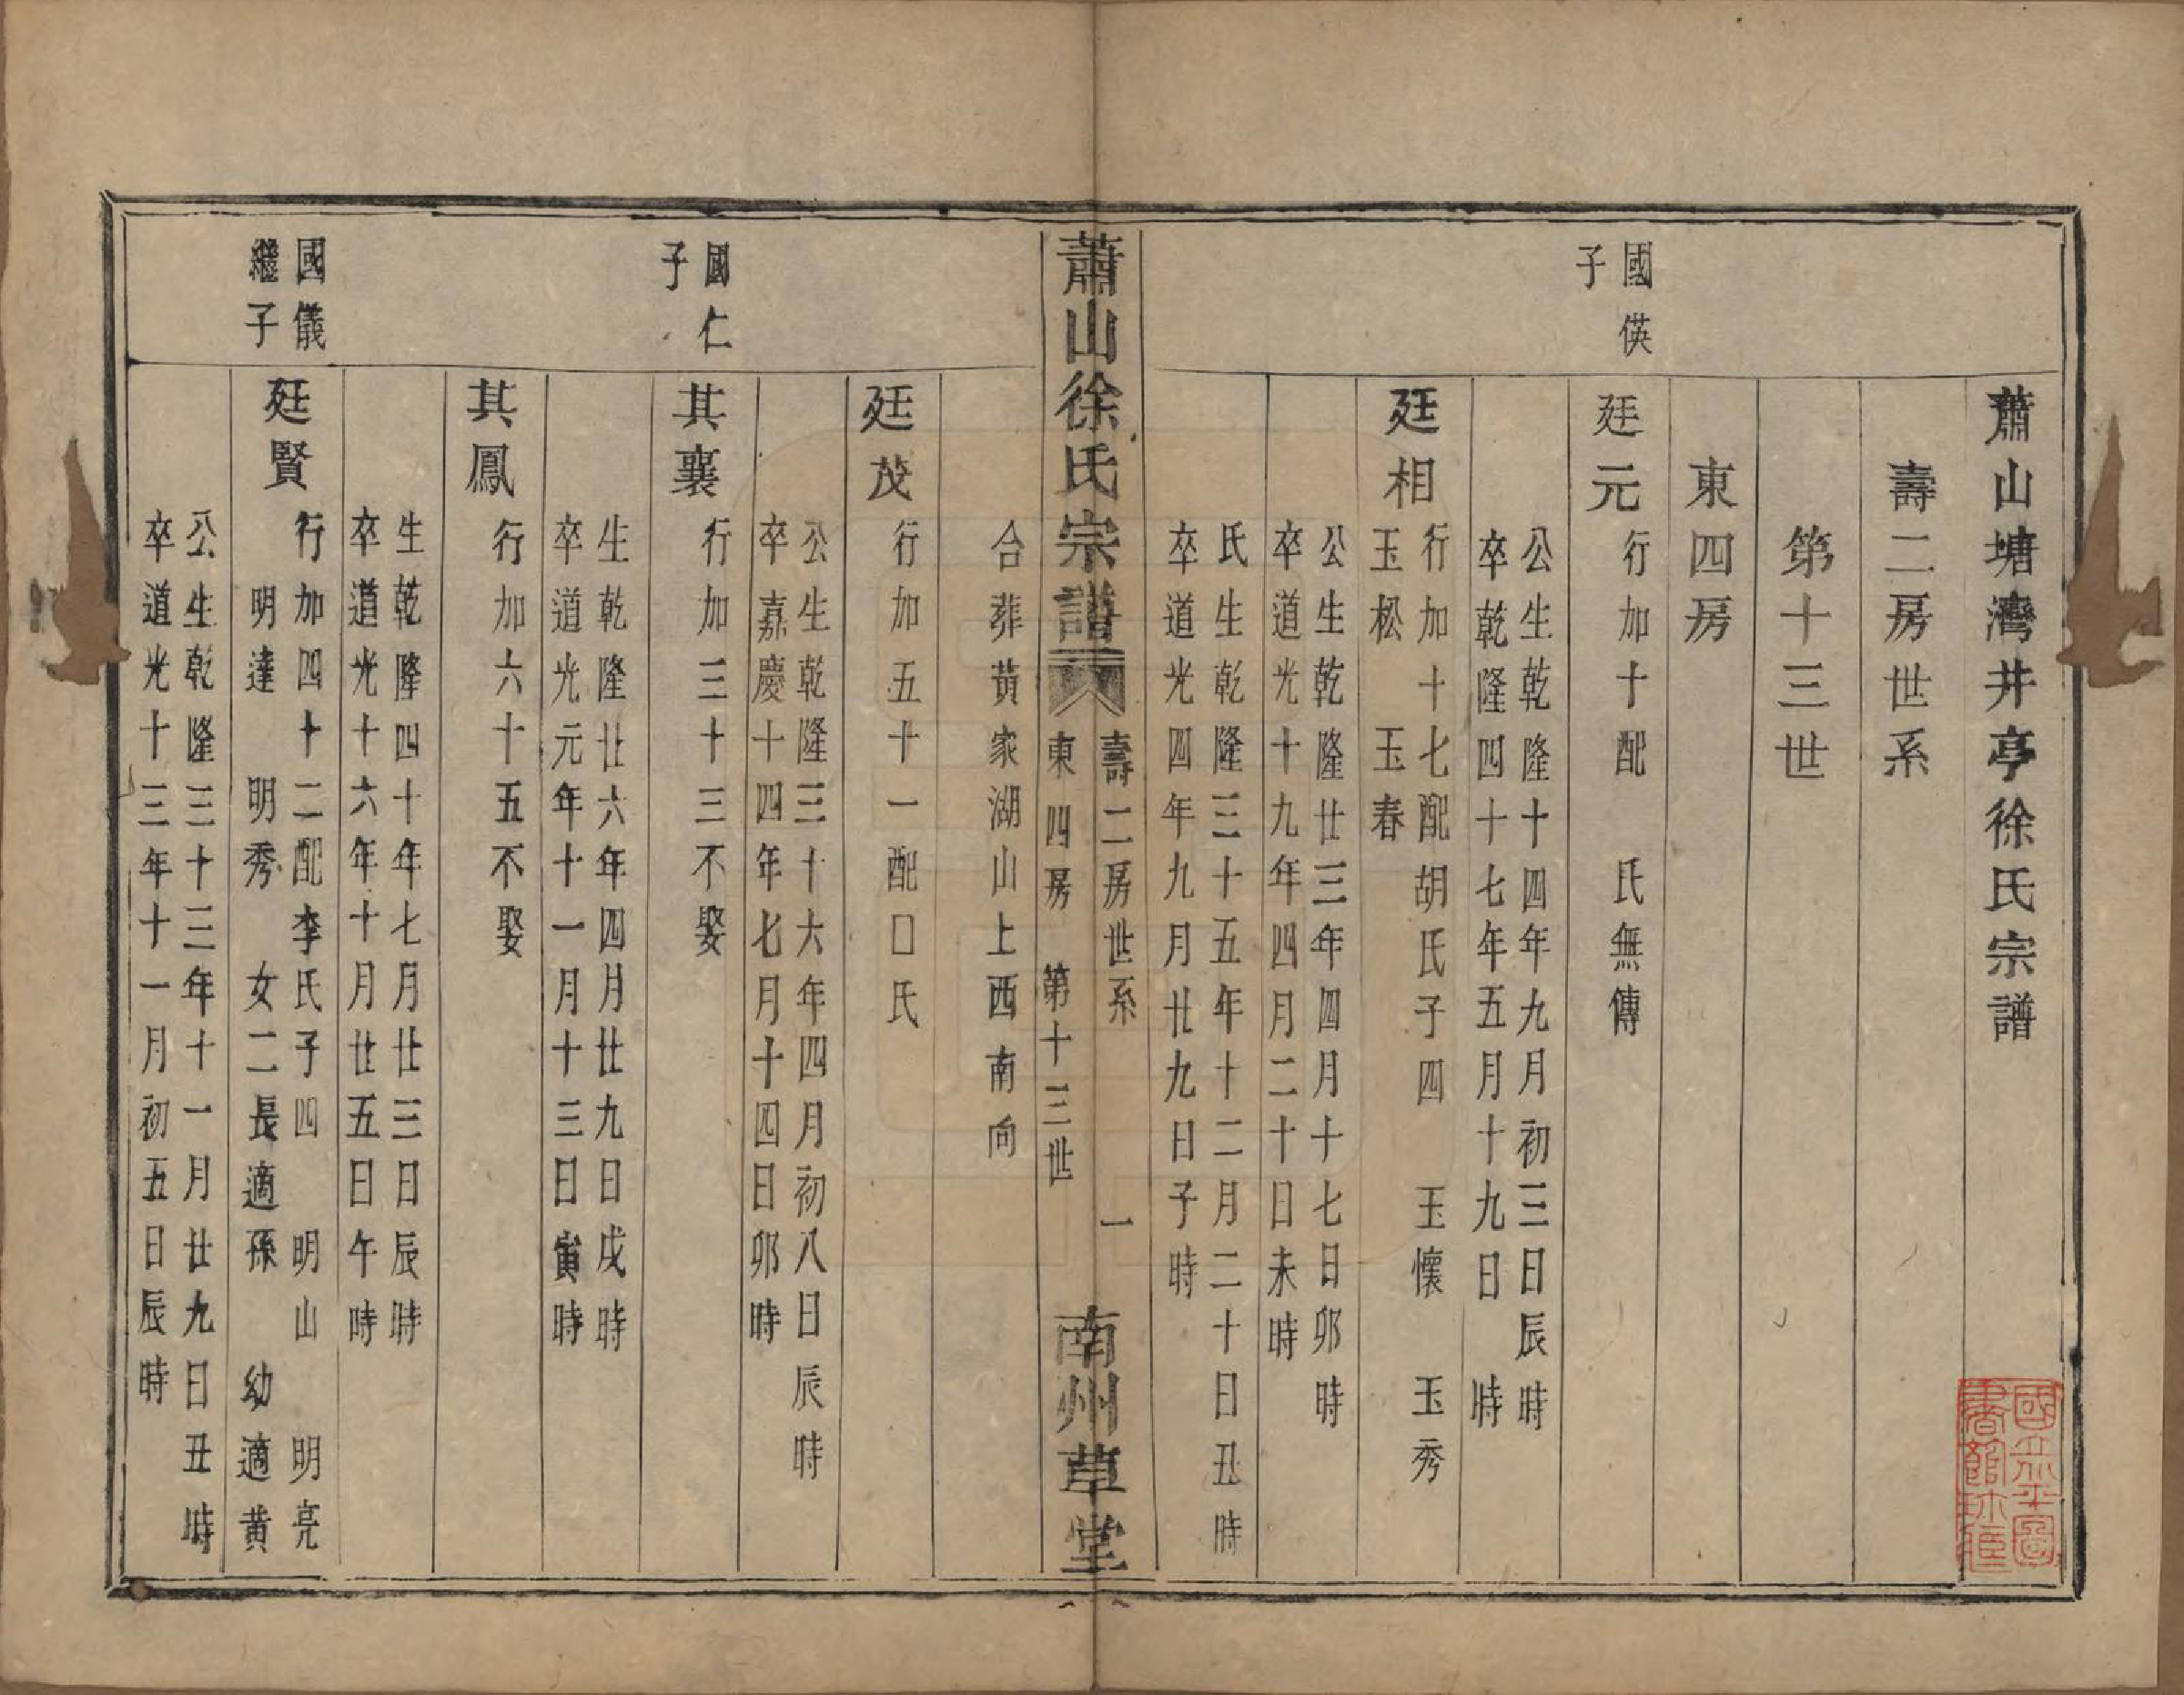 蕭山塘灣井亭徐氏宗譜
壽二房世系
第十三世
東四房
國偀
子
廷元
行加十配　氏無傳
公生乾隆十四年九月初三日辰時
卒乾隆四十七年五月十九日　時
廷相
行加十七配胡氏子四　玉懷　玉秀
玉松　玉春
公生乾隆廿三年四月十七日卯時
卒道光十九年四月二十日未時
氏生乾隆三十五年十二月二十日丑時
卒道光四年九月廿九日子時
蕭山徐氏宗譜
壽二房世系　一
東四房　第十三世
南州草堂
合葬黃家湖山上西南向
國仁
子
廷茂
行加五十一配口氏
公生乾隆三十六年四月初八日辰時
卒嘉慶十四年七月十四日卯時
其襄
行加三十三不娶
生乾隆廿六年四月廿九日戌時
卒道光元年十一月十三日寅時
其鳳
行加六十五不娶
生乾隆四十年七月廿三日辰時
卒道光十六年十月廿五日午時
國儀
繼子
廷賢
行加四十二配李氏子四　明山　明亮
明達　明秀　女二長適孫　幼適黃
公生乾隆三十三年十一月廿九日丑時
卒道光十三年十一月初五日辰時
國立北平圖
書館珍藏